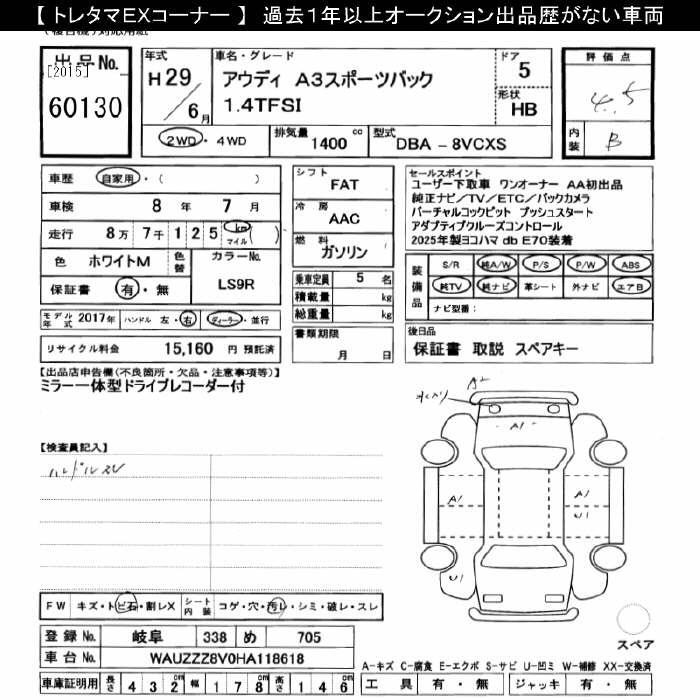 【 トレタマEXコーナー 】 過去1年以上オークション出品歴がない車両
出 品 No.
[2015]
60130
年式
H 29
6 月
車名・グレード
アウディ A3スポーツバック
1.4TFSI
ドア
5
形状
HB
評 価 点
4.5
内装
B
2WD・4WD
排気量
1400 cc
型式
DBA - 8VCXS
車歴
自家用・( )
車検
8 年 7 月
走行
8 万 7 千 1 2 5 km マイル ( )
色
ホワイトM
色替
カラーNo.
LS9R
保証書
有・無
モデル年式
2017年
ハンドル
左・右
ディーラー・並行
リサイクル料金
15,160 円 預託済
シフト
FAT
冷房
AAC
燃料
ガソリン
乗車定員
5 名
積載量
kg
総重量
kg
書類期限
月 日
セールスポイント
ユーザー下取車 ワンオーナー AA初出品
純正ナビ/TV/ETC/バックカメラ
バーチャルコックピット プッシュスタート
アダプティブクルーズコントロール
2025年製ヨコハマ db E70装着
装備品
S/R 純A/W P/S P/W ABS
純TV 純ナビ 革シート 外ナビ エアB
ナビ型番:
後日品
保証書 取説 スペアキー
【出品店申告欄(不良箇所・欠品・注意事項等)】
ミラー一体型ドライブレコーダー付
【検査員記入】
ハンドルスレ
A2
A1
A1
A1
U1
U1
FW キズ・トビ石・割レX
シート内装 コゲ・穴・汚レ・シミ・破レ・スレ
登録 No.
岐阜 338 め 705
車台 No.
WAUZZZ8V0HA118618
車庫証明用 長さ 4 3 2 cm 幅 1 7 8 cm 高さ 1 4 6 cm
スペア
A-キズ C-腐食 E-エクボ S-サビ U-凹ミ W-補修 XX-交換済
工 具 有・無 ジャッキ 有・無